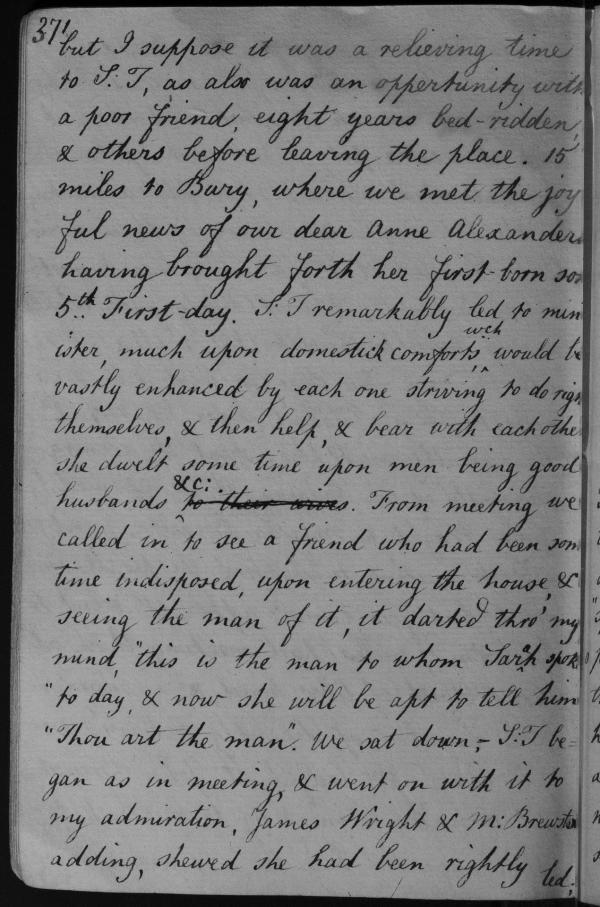 371
but I suppose it was a relieving time
to S: T, as also was an oppertunity with
a poor friend, eight years bed-ridden,
& others before leaving the place. 15
miles to Bury, where we met the joy
ful news of our dear Anne Alexanders
having brought forth her first-born son
5th First-day. S: T remarkably led to min
ister, much upon domestick comforts, wch would be
vastly enhanced by each one striving to do righ
themselves, & then help, & bear with each othe
she dwelt some time upon men being good
husbands &c: to their wives. From meeting we
called in to see a friend who had been som
time indisposed, upon entering the house, &
seeing the man of it, it darted thro' my
mind, "this is the man to whom Sarah spok
"to day, & now she will be apt to tell him
"Thou art the man". We sat down,- S: T be=
gan as in meeting, & went on with it to
my admiration, James Wright & M: Brewster
adding, shewed she had been rightly led;